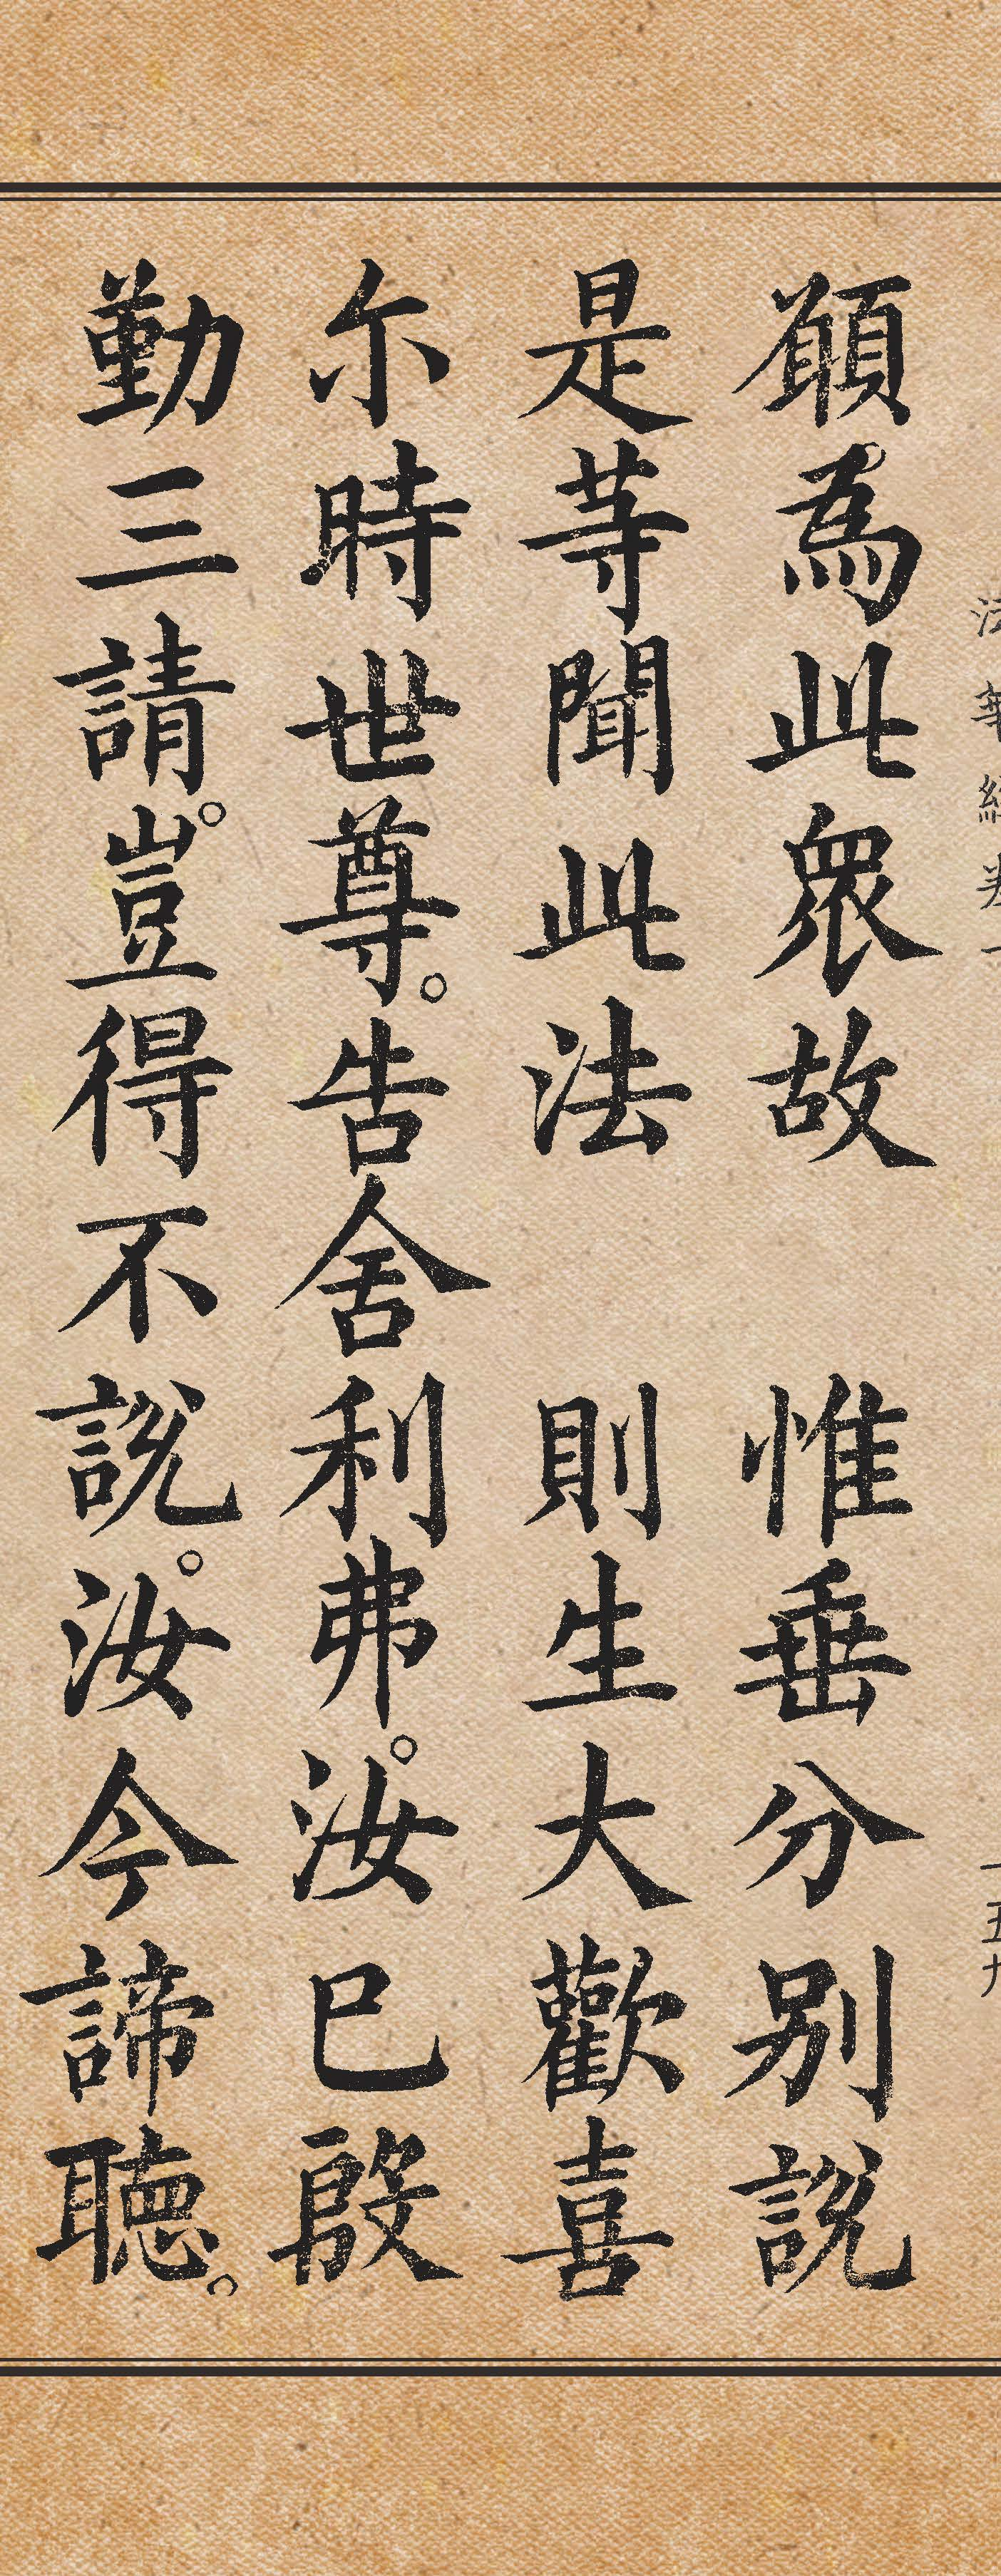 法華經卷一 一五九
願為此衆故 惟垂分别說
是等聞此法 則生大歡喜
尔時世尊。告舍利弗。汝已殷
勤三請。豈得不說。汝今諦聽。